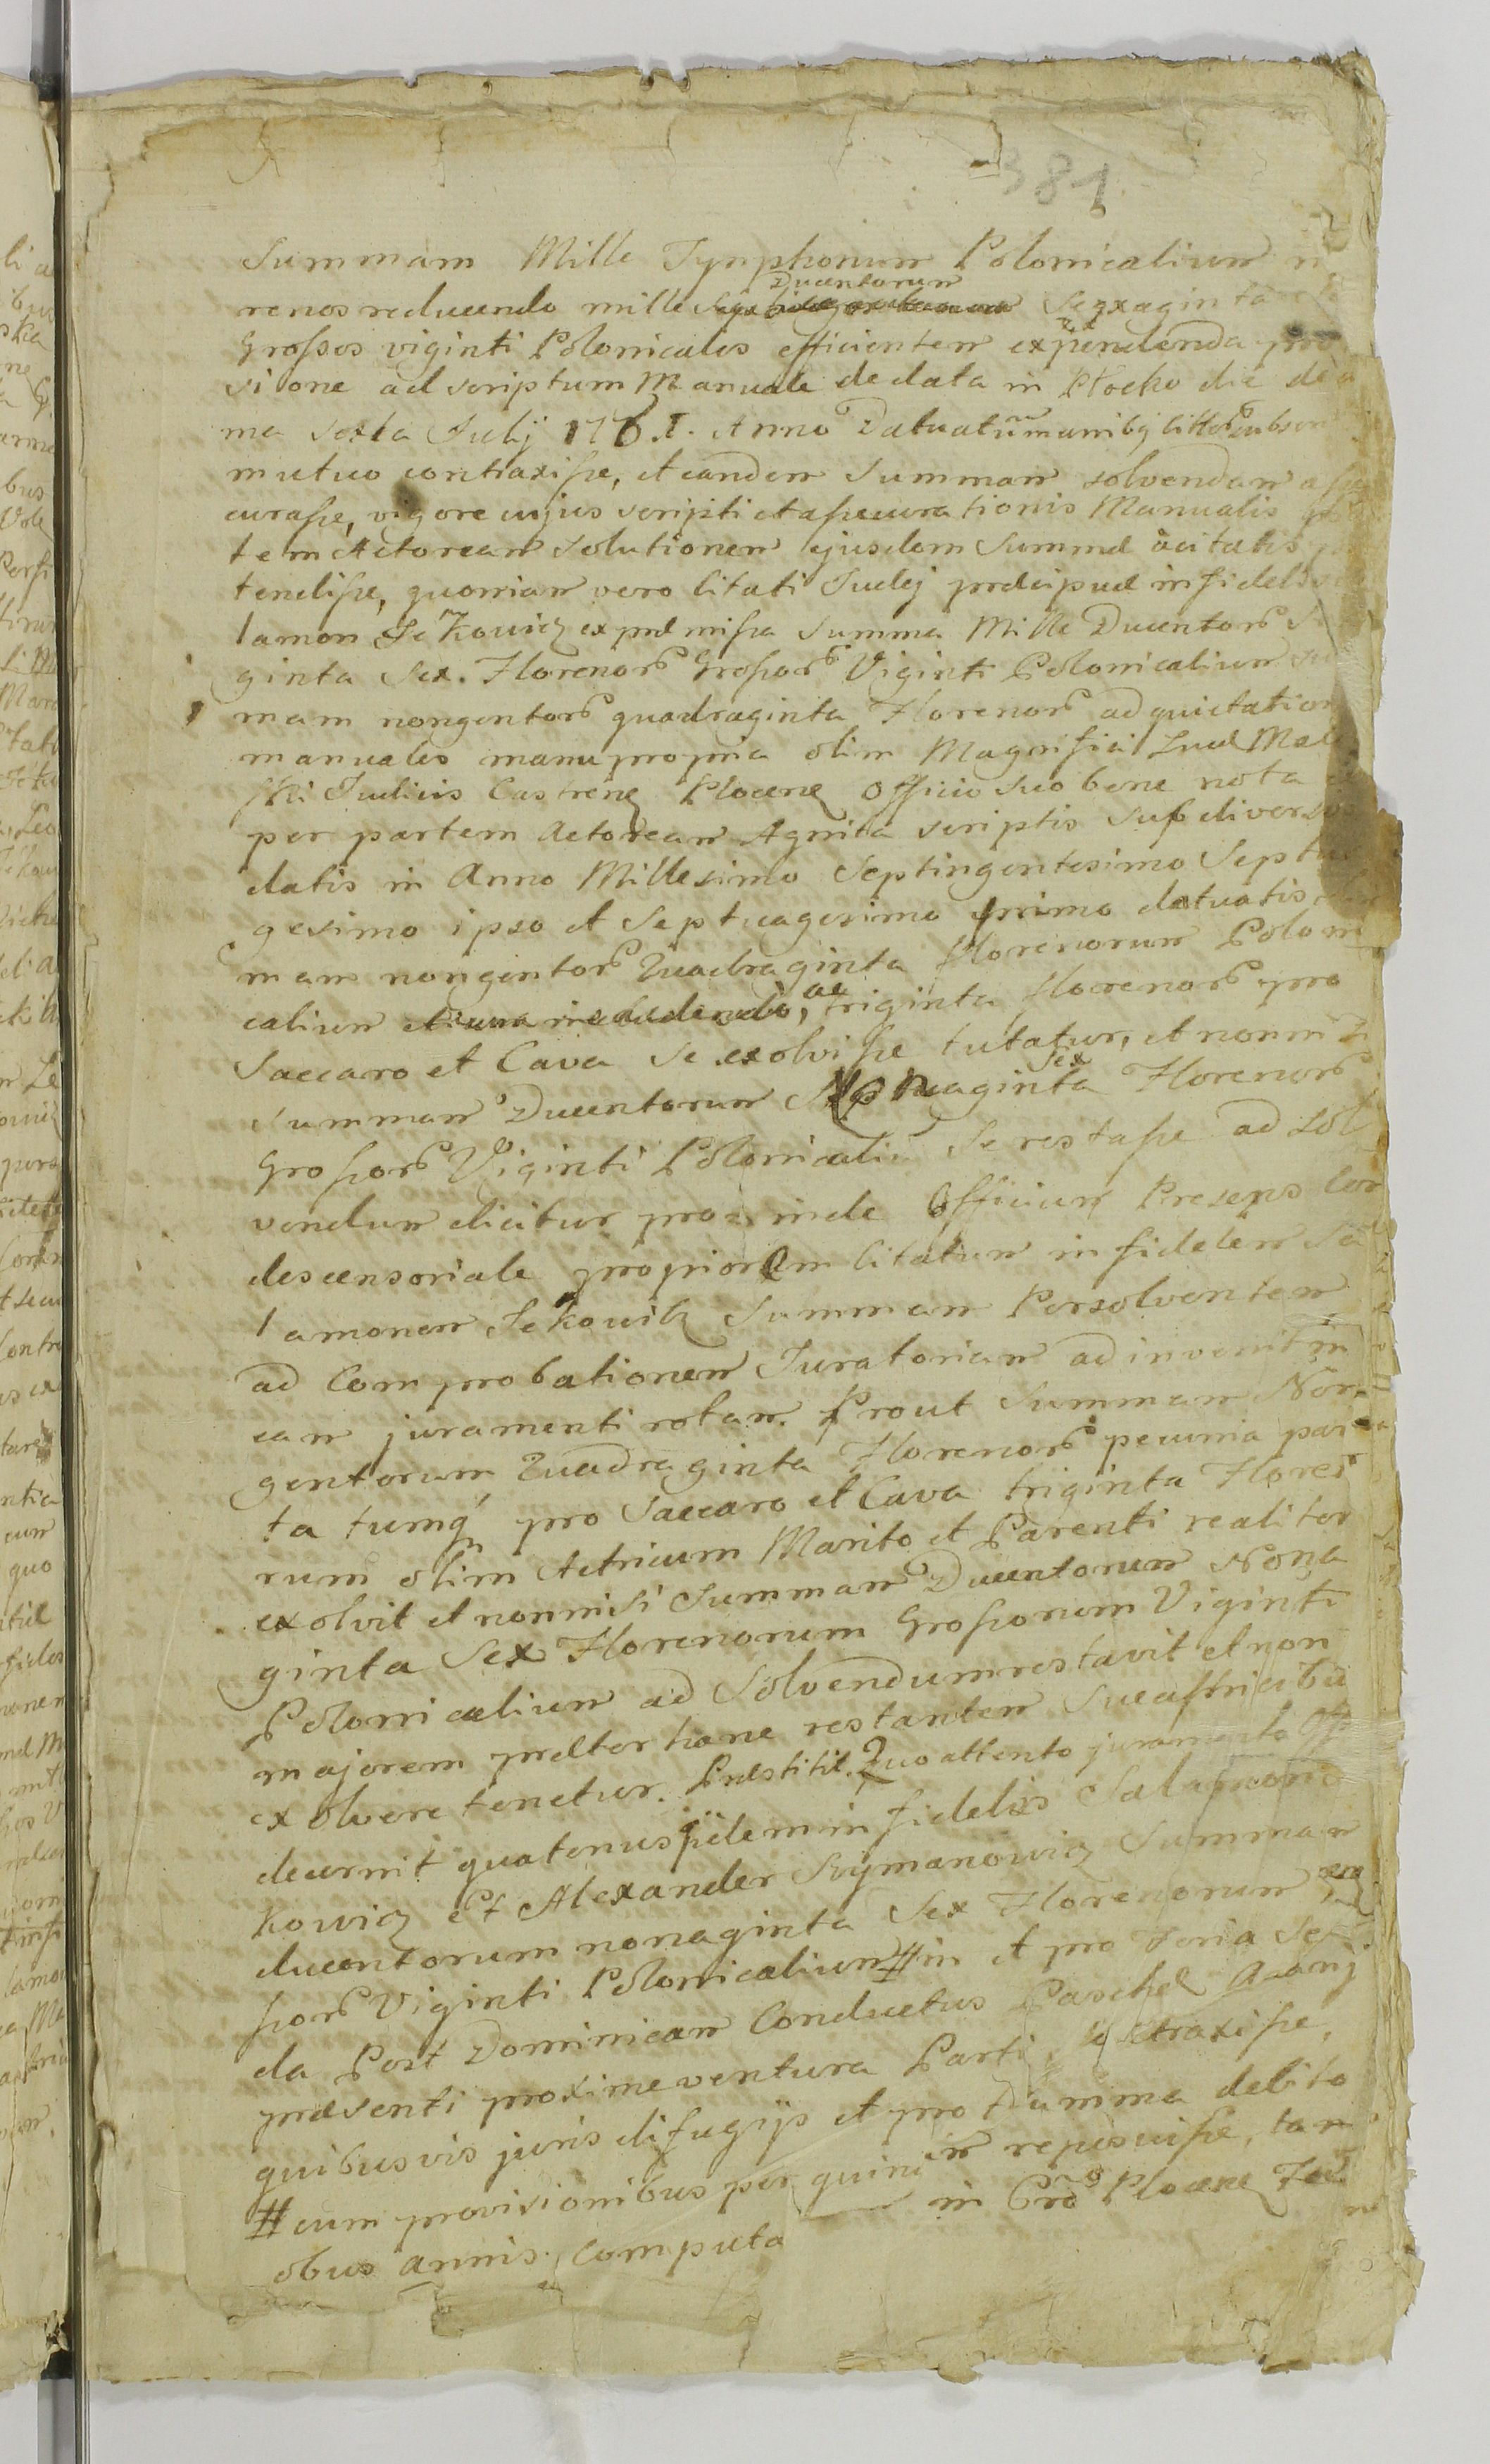 381
Summam Mille Tynphonum Polonicalium
renos reducendo mille Ducentorum Sexaginta
Grossos viginti Polonicales efficientem expendenda pro
visione ad scriptum Manuale de data in Plocko die deci
ma sexta Julij 1761. Anno Datuatum manibq litter subscri
mutuo contraxisse, et eandem Summam solvendam asse
curasse, vigore cujus scripti et assecurationis Manualis
tem Actoream Solutionem ejusdem Summæ citatis
tendisse, quoniam vero Citati Judej præcipuæ infidelis
lamon Jekowicz ex præmissa Summa Mille Ducentor
ginta Sex. Florenor Grossor Viginti Polonicalium
mam nongentor quadraginta Florenor ad quietation
manuales manu propria olim Magnifici Lucæ
ski Judicis Castren Plocen Officio suo bene nota
per partem Actoream Agnita scriptis sub diversis
datis in Anno Millesimo Septingentesimo Septua
gesimo ipso et Septuagesimo primo datuatis
mam nongentor Quadraginta florenorum Poloni
calium ac triginta florenor pro
Saccaro et Cava se exolvisse tutatur, et nonni
Summam Ducentorum Nonaginta Sex Florenor
Grossor Viginti Polonicaliu se restasse ad Sol
vendum dicitur proinde Officium Presens Con
descensoriale propriorem Citatum infidelem Sa
lamonem Jekowicz Summam Persolventem
ad Comprobationem Juratoriam ad invenit in
eam juramenti rotam. Prout Summam Non
gentorum Quadraginta Florenor pecunia para
ta tumq pro Saccaro et Cava triginta Flore
rum olim Actricum Marito et Parenti realiter
exolvit et nonnisi Summam Ducentorum Nona
ginta Sex Florenorum Grossorum Viginti
Polonicalium ad Solvendum restavit et non
majorem præter hanc restantem Sucessricibu
exolvere tenetur. Præstitit. Quo attento juramento Off
decernit quatenus ijdem infidelis Salamon
kowicz et Alexander Szymanowicz Summam
ducentorum nonaginta Sex Florenorum
ssor Viginti Polonicalium # in et pro Feria Se
da Post Dominicam Conductus Paschæ Anni
præsenti proxime ventura Parti extraxisse,
quibusvis juris difugijs et pro Summa debito
# cum provisionibus per quin in reposuisse, tam
obus annis. Computa in Cro Plocen